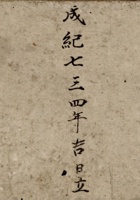 成紀七三四年吉日立